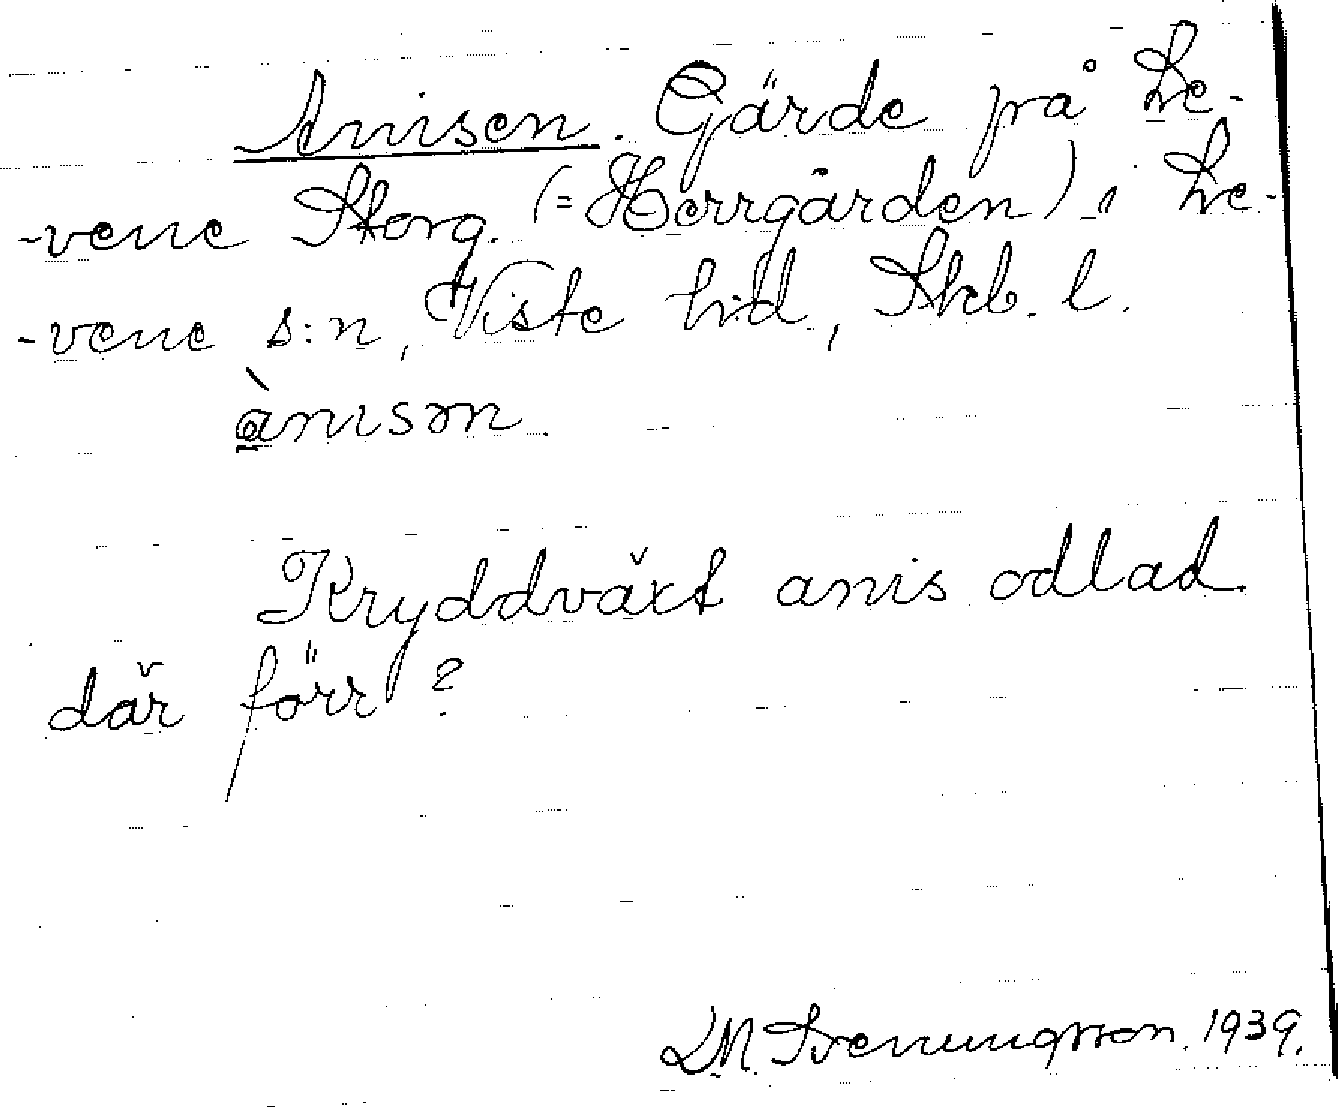 Anisen. Gärde på Le-
-vene Storg. (=Herrgården) i Le-
-vene s:n, Viste hd, Skb. l.
ànisən
Kryddväxt anis odlad
där förr?
1939.